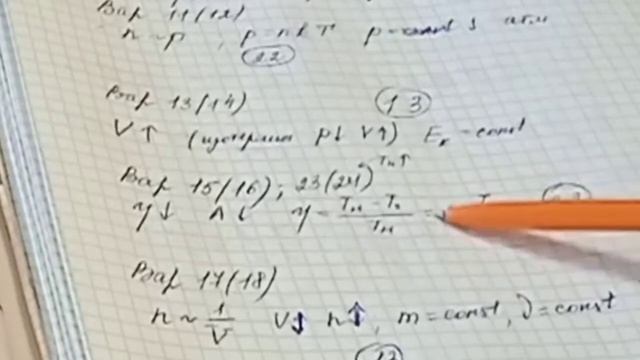 Вар 11(12)
n ~ p, p = nkT p = const
22
Вар 13/14) 13
V↑ (изотерма p↓ V↑) Eк - const
Вар 15/(16); 23(24) Tн↑
η↓ A↓ η = (Tн - Tх)/Tн =
Вар 17(18)
n ~ 1/V V↓ n↑, m = const, ν = const